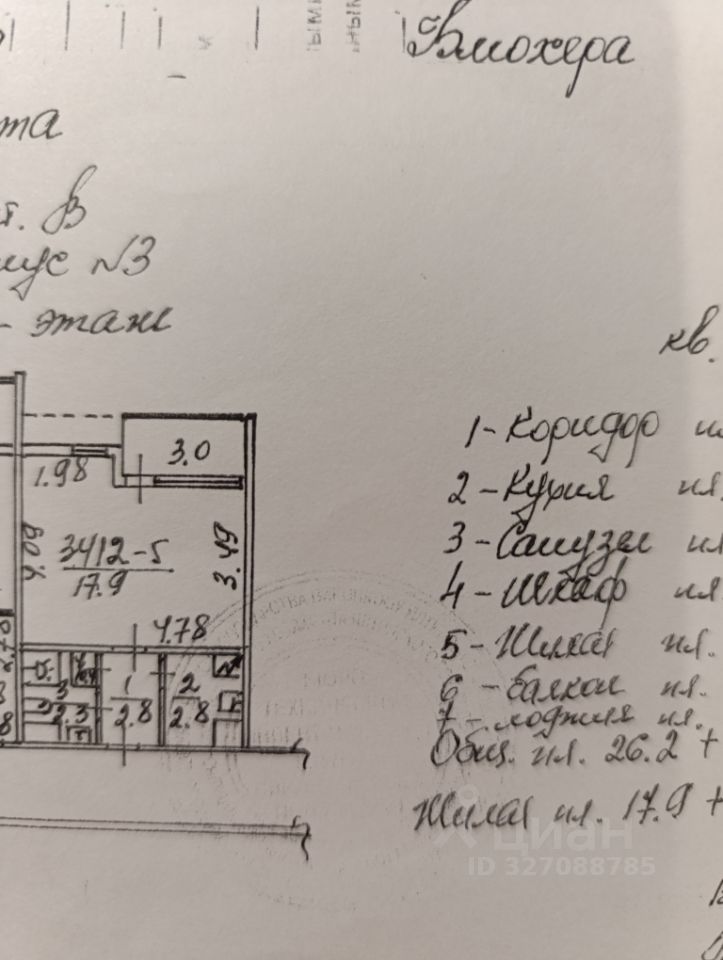 Блюхера
та
т. В
пус N3
- этаж
кв.
1-Коридор пл
2-Кухня пл.
3-Санузел пл
4-Шкаф пл
5-Жилая пл.
6-балкон пл.
7-лоджия пл.
Общ. пл. 26.2 +
Жилая пл. 17.9 +
3.0
1.98
4.09
3412-5
17.9
3.49
4.78
1
2.8
2
2.8
3
2.3
циан
ID 327088785